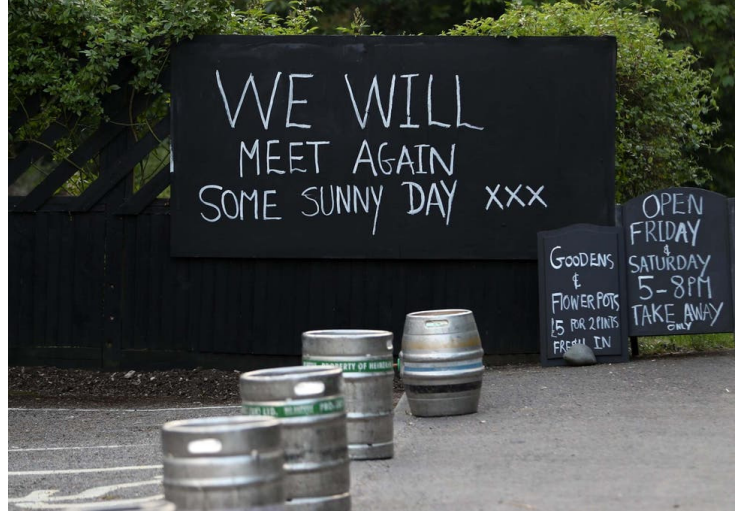 WE WILL
MEET AGAIN
SOME SUNNY DAY XXX
GOODENS
&
FLOWERPOTS
£5 FOR 2 PINTS
IN
OPEN
FRIDAY
&
SATURDAY
5-8PM
TAKE AWAY
ONLY
PROPERTY OF